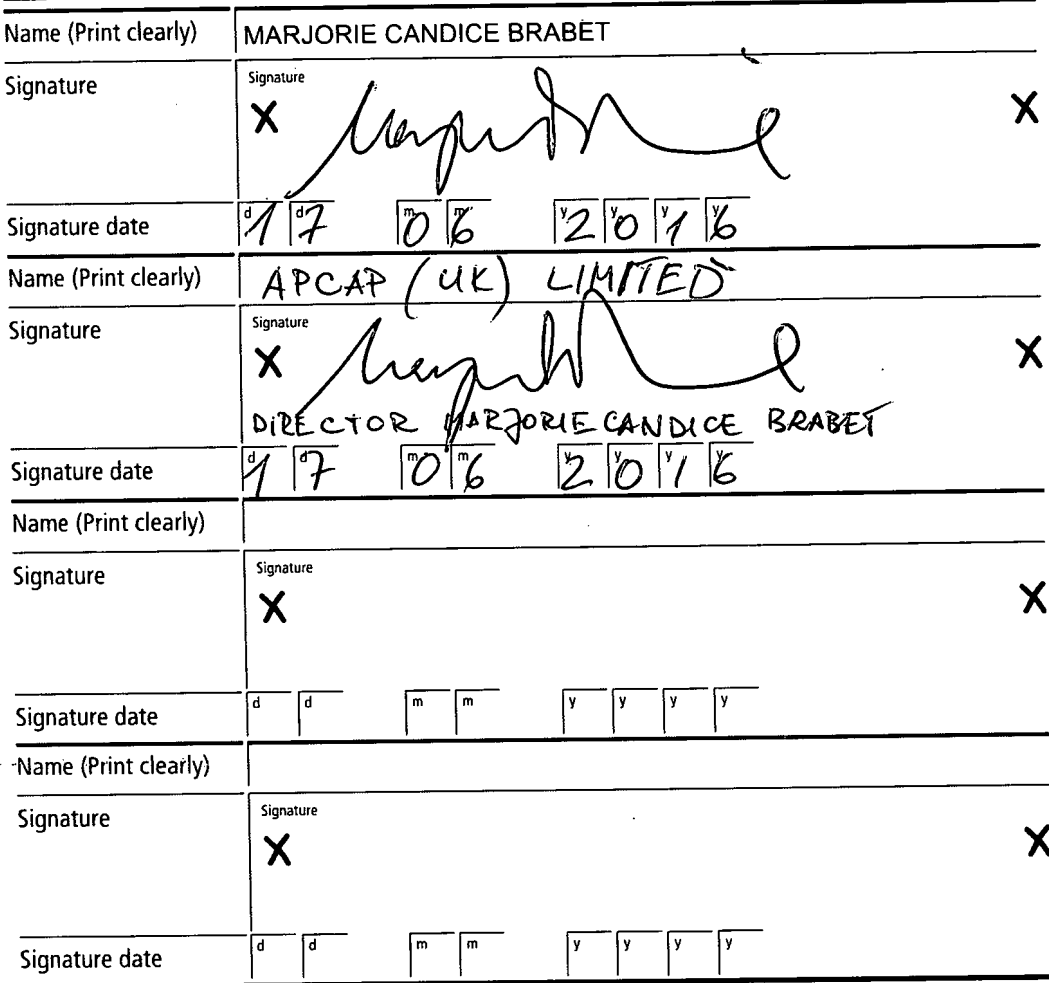 Name (Print clearly) MARJORIE CANDICE BRABET
Signature Signature
X X
Signature date d1 d7 m0 m6 y2 y0 y1 y6
Name (Print clearly) APCAP (UK) LIMITED
Signature Signature
X X
DIRECTOR MARJORIE CANDICE BRABET
Signature date d1 d7 m0 m6 y2 y0 y1 y6
Name (Print clearly)
Signature Signature
X X
Signature date d d m m y y y y
Name (Print clearly)
Signature Signature
X X
Signature date d d m m y y y y